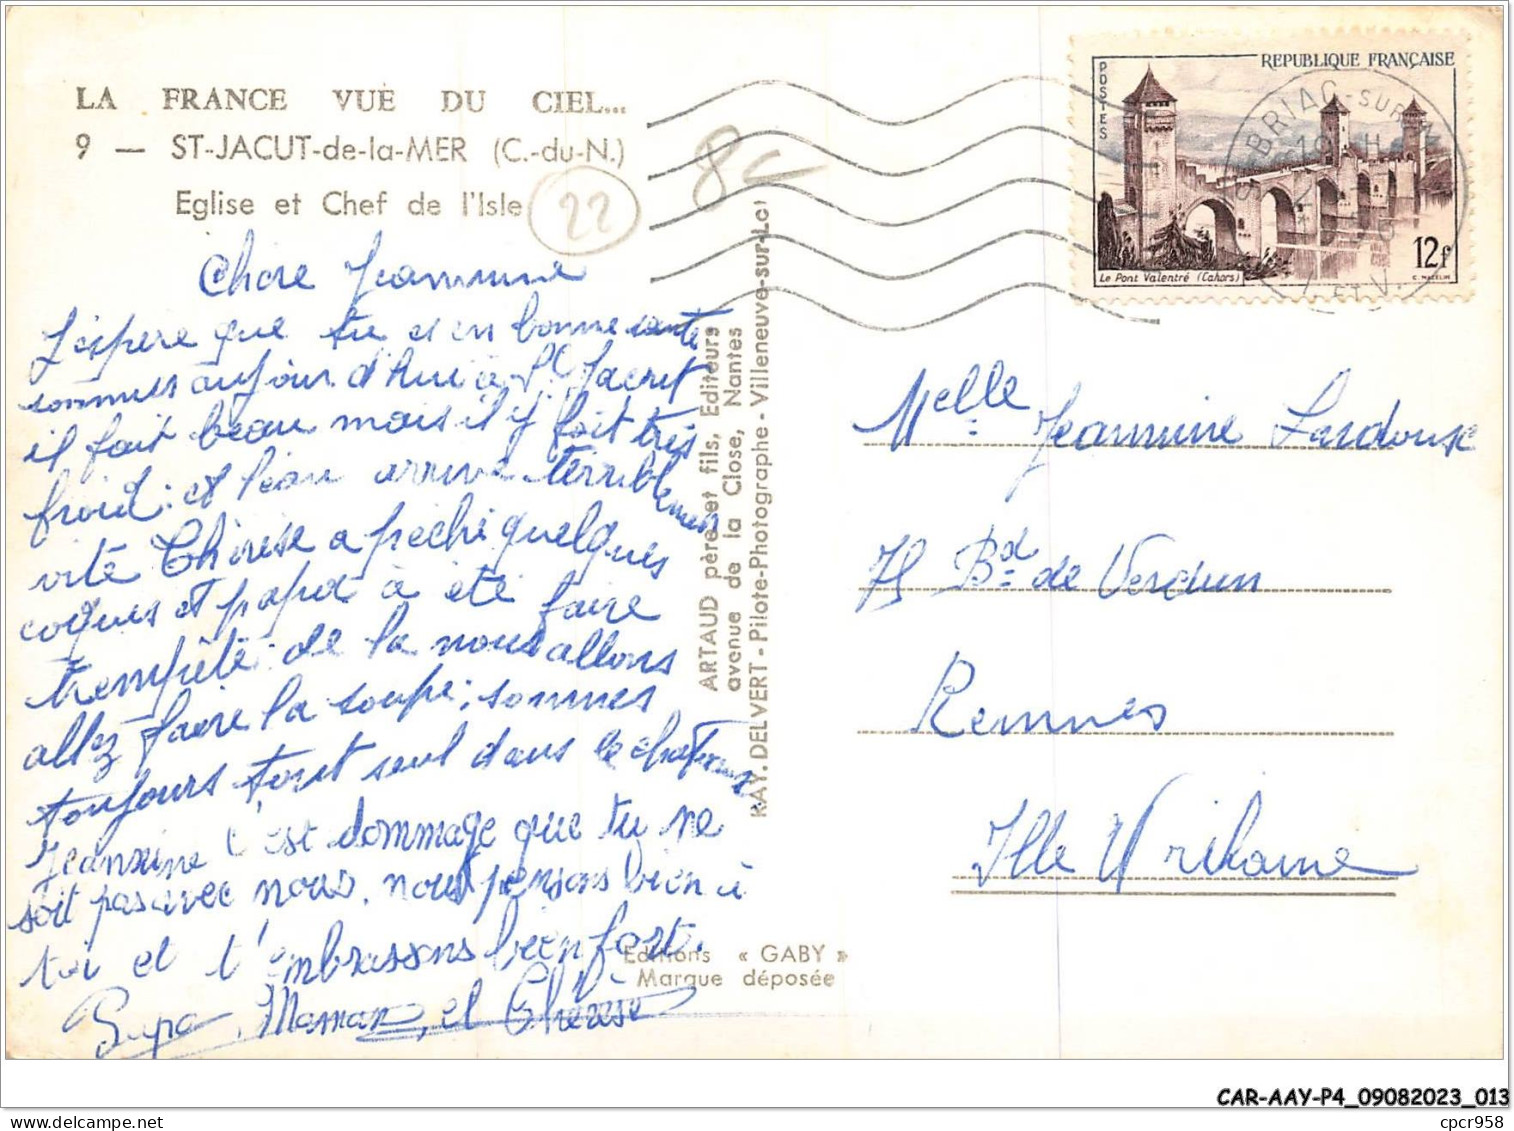 LA FRANCE VUE DU CIEL...
9 — ST-JACUT-de-la-MER (C.-du-N.)
Eglise et Chef de l'Isle
22
8c
Chere Jeannine
J'espere que tu es en bonne sante
sommes aujour d'hui a St Jacut
il fait beau mais il y fait très
froid. et l'eau arrive terriblement
vite Thérèse a peché quelques
coques et papa à été faire
trempète. de la nous allons
allez faire la soupe; sommes
toujours tout seul dans le chateau
Jeannine c'est dommage que tu ne
soit pas avec nous. nous pensons bien à
toi et t'embrassons bien fort.
Papa, Maman, et Thérèse
ARTAUD père et fils, Editeurs
avenue de la Close, Nantes
RAY. DELVERT - Pilote-Photographe - Villeneuve-sur-Lot
Editions « GABY »
Marque déposée
REPUBLIQUE FRANÇAISE
POSTES
Le Pont Valentré (Cahors)
12f
C. MAZELIN
BRIAC-SUR-M
ET V.
Melle Jeannine Lardoux
75 Bd de Verdun
Rennes
Ille & Vilaine
CAR-AAY-P4_09082023_013
cpcr958